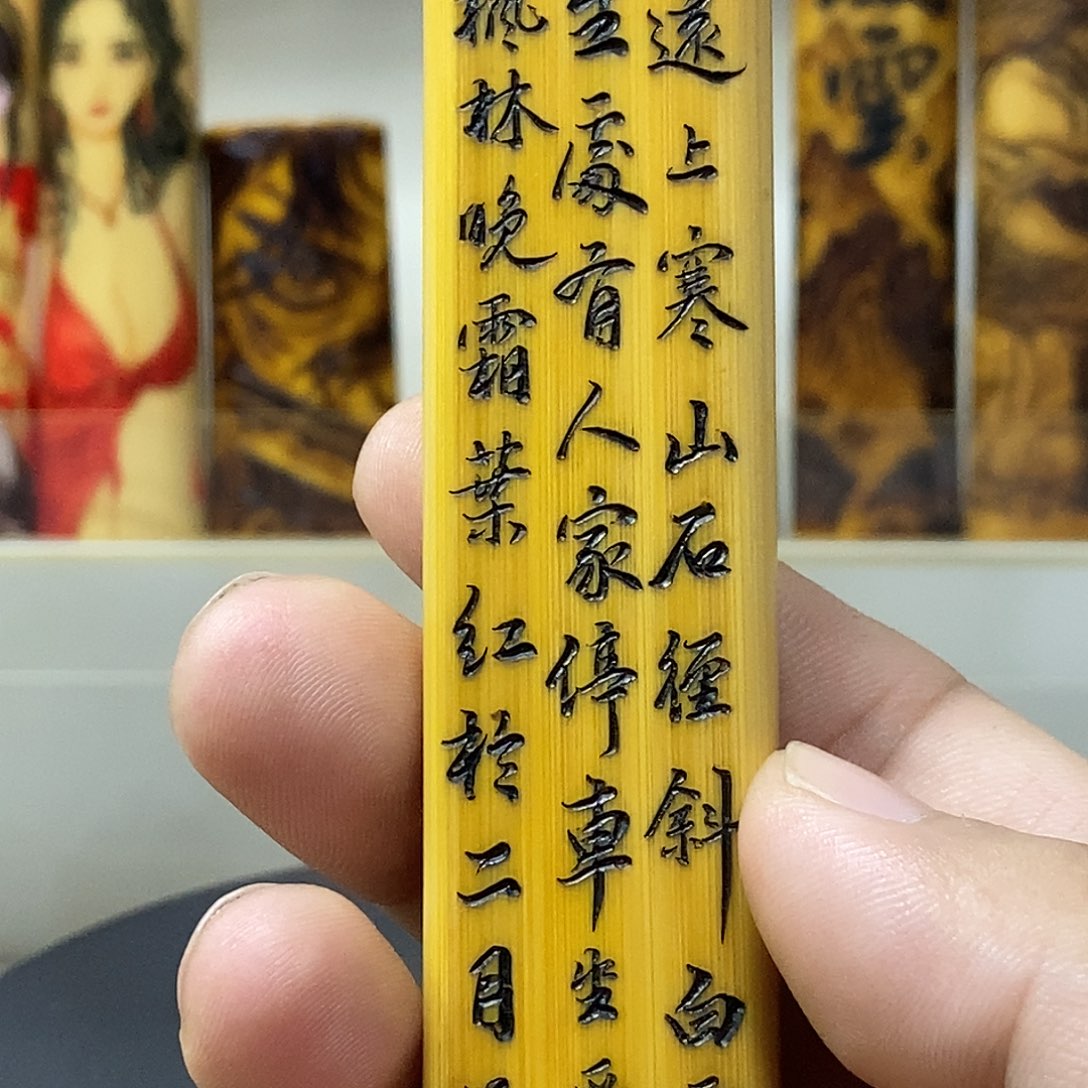 遠上寒山石徑斜白
生處有人家停車坐愛
楓林晚霜葉红於二月
雲